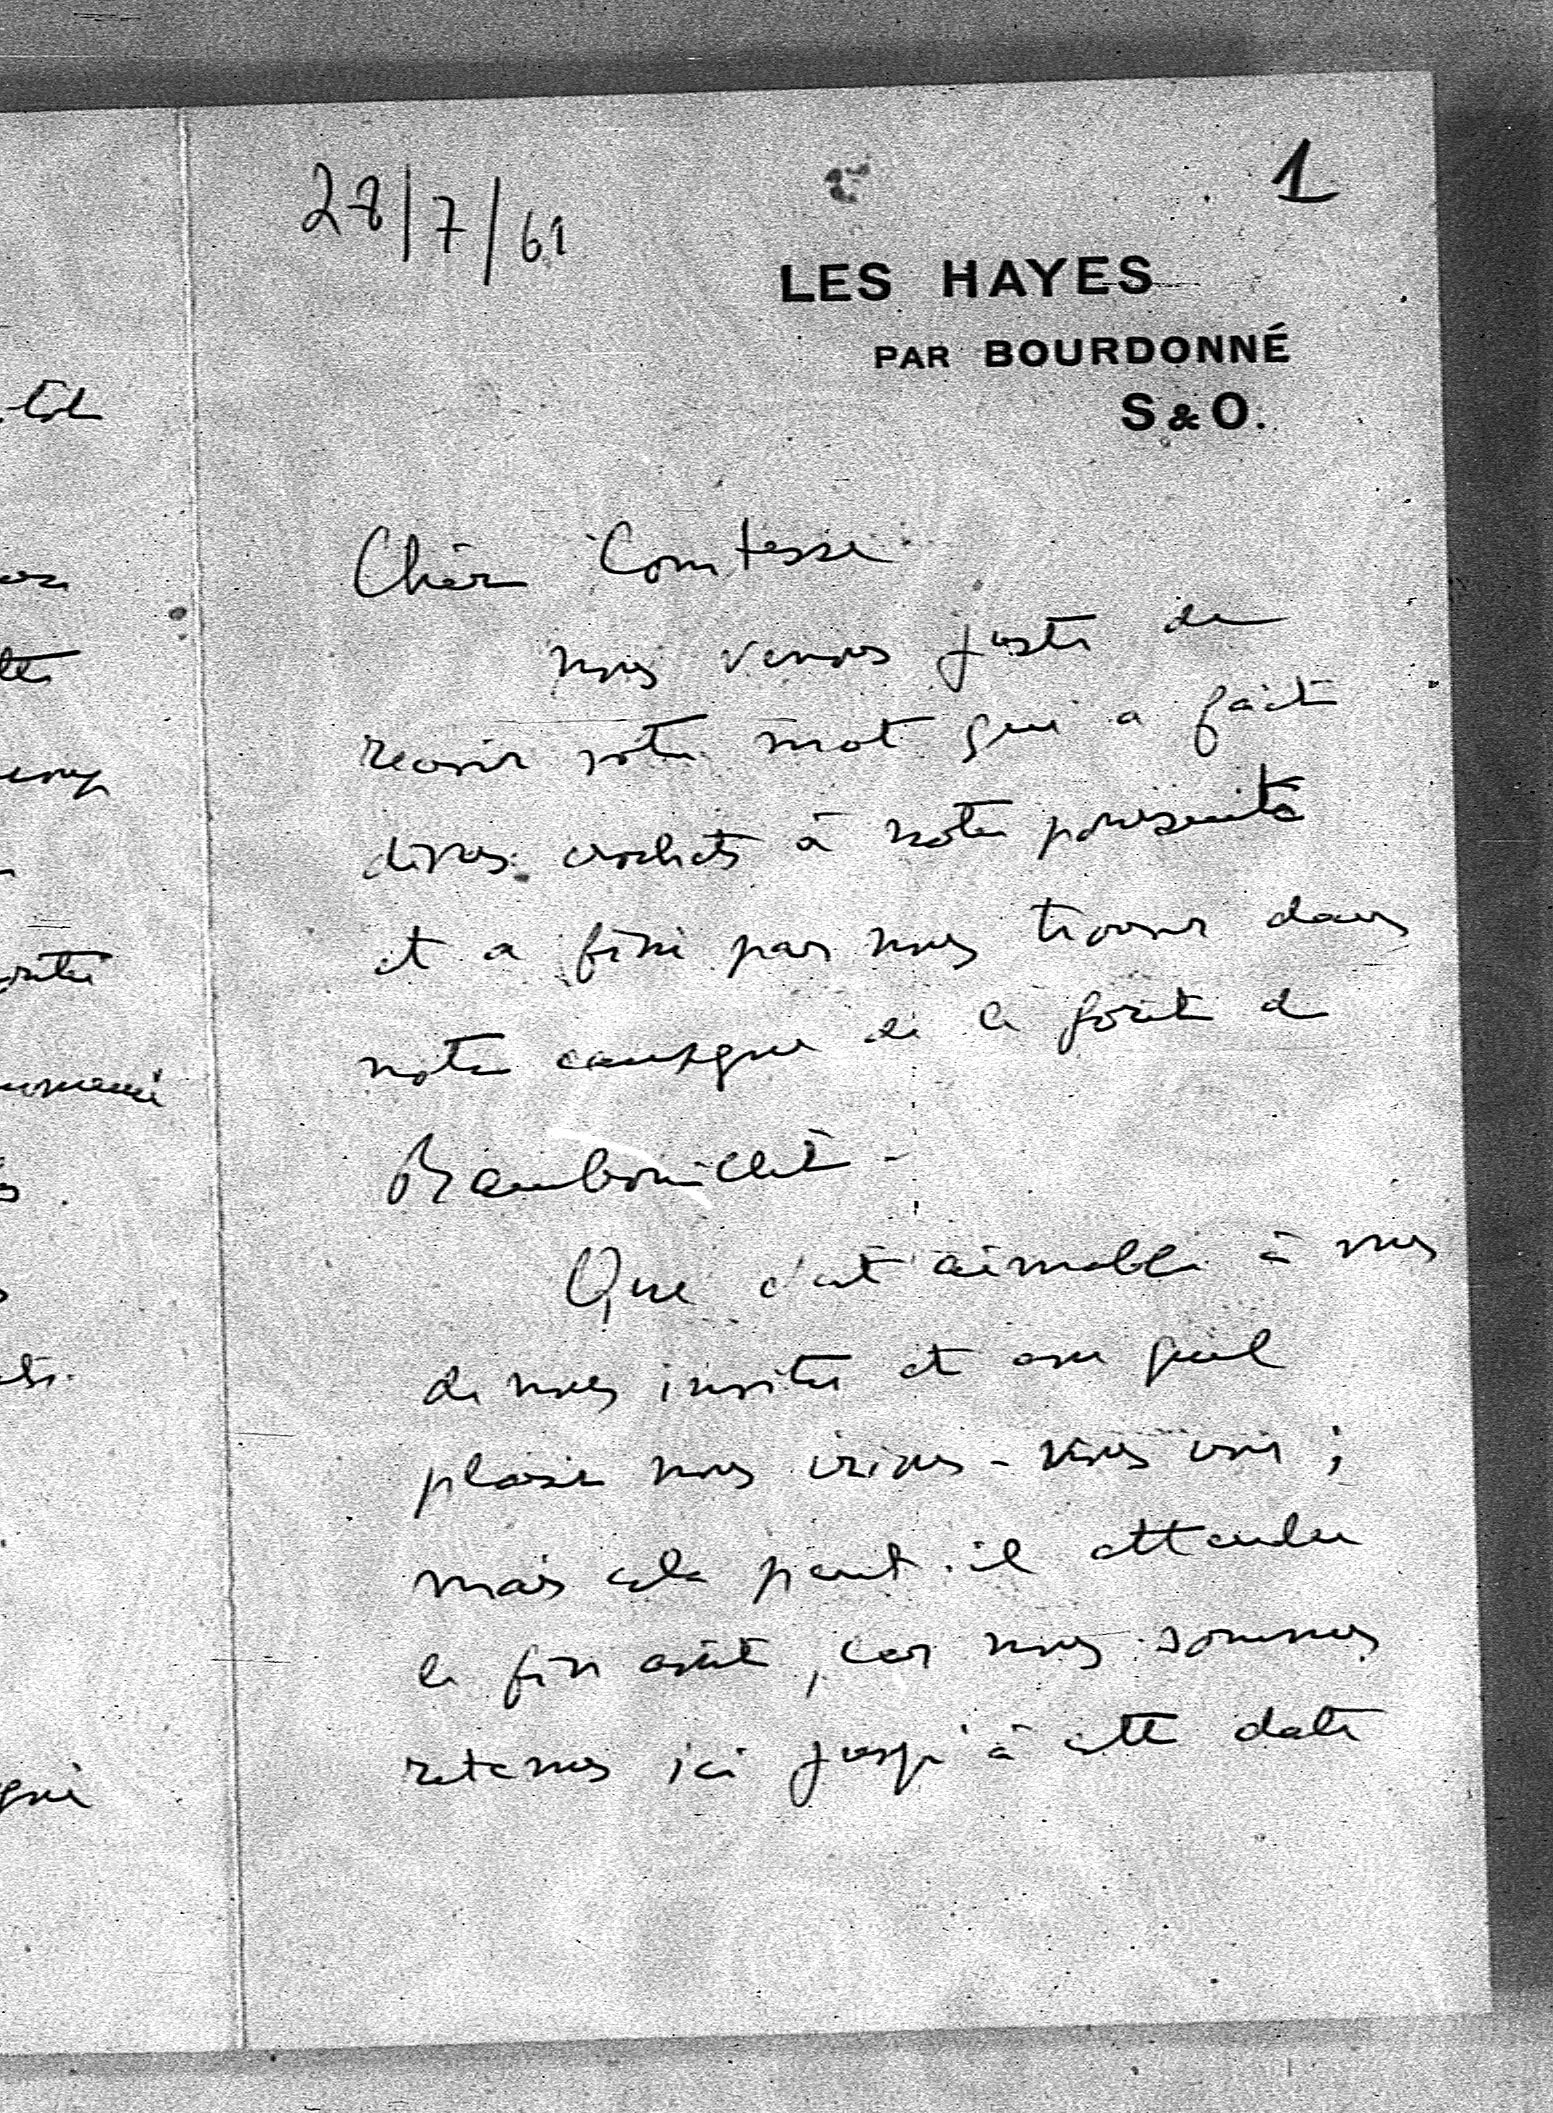 28/7/61
1
LES HAYES
PAR BOURDONNÉ
S & O.
Chère Comtesse
nous venons juste de
recevoir votre mot qui a fait
divers crochets à notre poursuite
et a fini par nous trouver dans
notre campagne de la forêt de
Rambouillet -
Que c'est aimable à vous
de nous inviter et avec quel
plaisir nous irions vous voir ;
mais cela peut-il attendre
la fin août, car nous sommes
retenus ici jusqu'à cette date